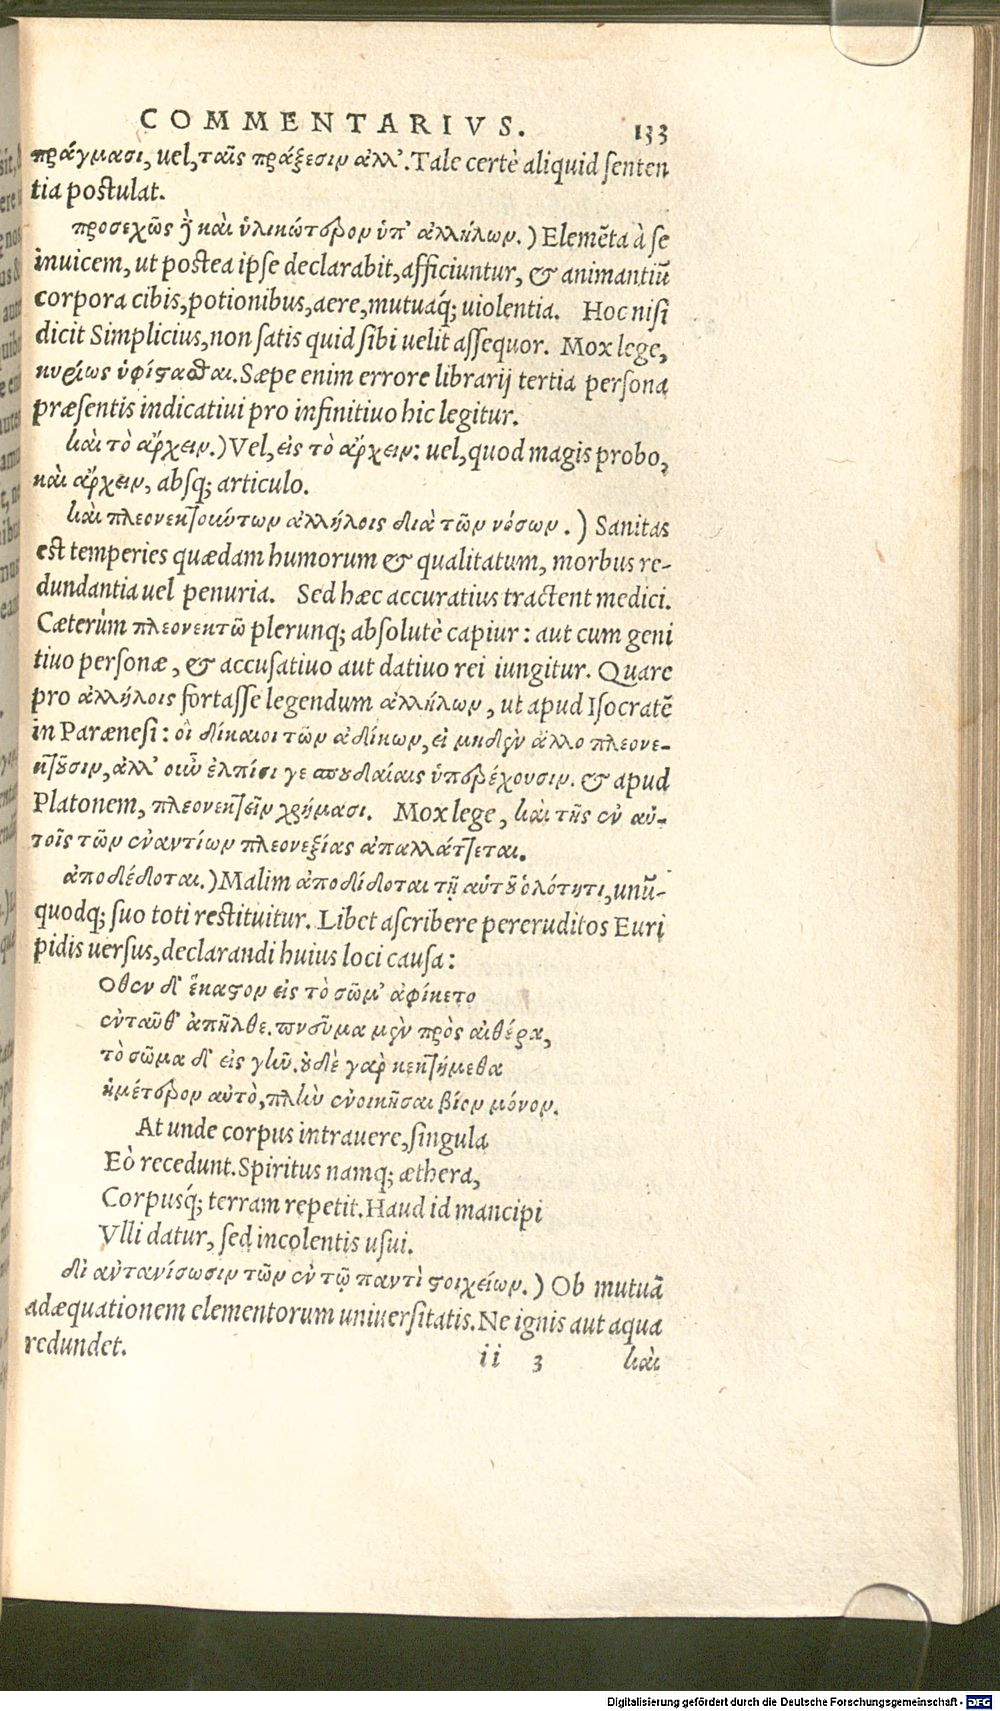 COMMENTARIVS. 133
πράγμασι, uel, ταῖς πράξεσιν ἀλλ'. Tale certè aliquid senten
tia postulat.
προσεχῶς ἢ καὶ ὑλικώτερον ὑπ' ἀλλήλων.) Elemẽta à se
inuicem, ut postea ipse declarabit, afficiuntur, & animantiũ
corpora cibis, potionibus, aere, mutuaq́; uiolentia. Hoc nisi
dicit Simplicius, non satis quid sibi uelit assequor. Mox lege,
κυρίως ὑφίστασθαι. Sæpe enim errore librarij tertia persona
præsentis indicatiui pro infinitiuo hic legitur.
καὶ τὸ ἄρχειν.) Vel, εἰς τὸ ἄρχειν: uel, quod magis probo,
καὶ ἄρχειν, absq; articulo.
καὶ πλεονεκτούντων ἀλλήλοις διὰ τῶν νόσων.) Sanitas
est temperies quædam humorum & qualitatum, morbus re-
dundantia uel penuria. Sed hæc accuratius tractent medici.
Cæterùm πλεονεκτῶ plerunq; absolutè capiur: aut cum geni
tiuo personæ, & accusatiuo aut datiuo rei iungitur. Quare
pro ἀλλήλοις fortasse legendum ἀλλήλων, ut apud Isocratẽ
in Parænesi: οἱ δίκαιοι τῶν ἀδίκων, εἰ μηδὲν ἄλλο πλεονε-
κτοῦσιν, ἀλλ' οὖν ἐλπίσι γε σπουδαίαις ὑπερέχουσιν. & apud
Platonem, πλεονεκτεῖν χρήμασι. Mox lege, καὶ τῆς ἐν αὐ-
τοῖς τῶν ἐναντίων πλεονεξίας ἀπαλλάττεται.
ἀποδέδοται.) Malim ἀποδίδοται τῇ αὑτοῦ ὁλότητι, unũ-
quodq; suo toti restituitur. Libet ascribere pereruditos Euri
pidis uersus, declarandi huius loci causa:
Οθεν δ' ἕκαστον εἰς τὸ σῶμ' ἀφίκετο
ἐνταῦθ' ἀπῆλθε. πνεῦμα μὲν πρὸς αἰθέρα,
τὸ σῶμα δ' εἰς γῆν. οὐδὲ γὰρ κεκτήμεθα
ἡμέτερον αὐτὸ, πλὴν ἐνοικῆσαι βίον μόνον.
At unde corpus intrauere, singula
Eò recedunt. Spiritus namq; æthera,
Corpusq́; terram repetit. Haud id mancipi
Vlli datur, sed incolentis usui.
δι' ἀντανίσωσιν τῶν ἐν τῷ παντὶ στοιχείων.) Ob mutuã
adæquationem elementorum uniuersitatis. Ne ignis aut aqua
redundet.
ii 3 καὶ
Digitalisierung gefördert durch die Deutsche Forschungsgemeinschaft - DFG